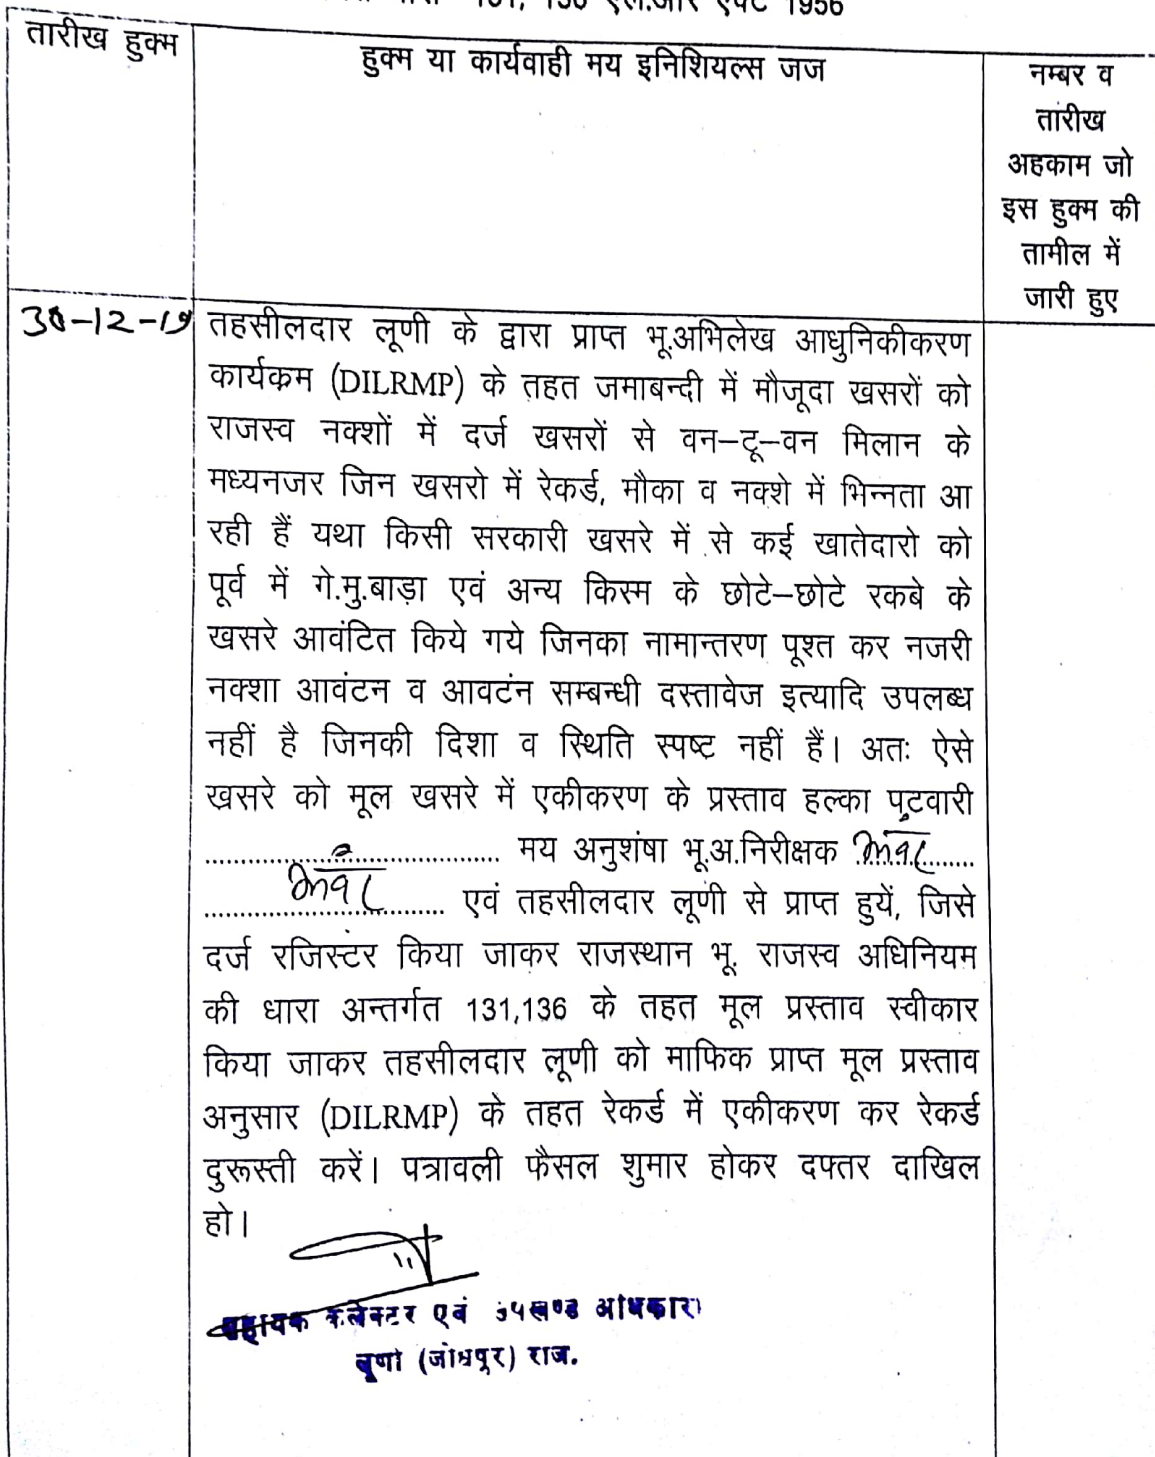 131, 136 एल.आर एक्ट 1956
तारीख हुक्म
हुक्म या कार्यवाही मय इनिशियल्स जज
नम्बर व
तारीख
अहकाम जो
इस हुक्म की
तामील में
जारी हुए
30-12-19
तहसीलदार लूणी के द्वारा प्राप्त भू.अभिलेख आधुनिकीकरण
कार्यकम (DILRMP) के तहत जमाबन्दी में मौजूदा खसरों को
राजस्व नक्शों में दर्ज खसरों से वन–टू–वन मिलान के
मध्यनजर जिन खसरो में रेकर्ड, मौका व नक्शे में भिन्नता आ
रही हैं यथा किसी सरकारी खसरे में से कई खातेदारो को
पूर्व में गे.मु.बाड़ा एवं अन्य किस्म के छोटे–छोटे रकबे के
खसरे आवंटित किये गये जिनका नामान्तरण पूश्त कर नजरी
नक्शा आवंटन व आवटंन सम्बन्धी दस्तावेज इत्यादि उपलब्ध
नहीं है जिनकी दिशा व स्थिति स्पष्ट नहीं हैं। अतः ऐसे
खसरे को मूल खसरे में एकीकरण के प्रस्ताव हल्का पटवारी
.................................... मय अनुशंषा भू.अ.निरीक्षक
.............................. एवं तहसीलदार लूणी से प्राप्त हुयें, जिसे
दर्ज रजिस्टर किया जाकर राजस्थान भू. राजस्व अधिनियम
की धारा अन्तर्गत 131,136 के तहत मूल प्रस्ताव स्वीकार
किया जाकर तहसीलदार लूणी को माफिक प्राप्त मूल प्रस्ताव
अनुसार (DILRMP) के तहत रेकर्ड में एकीकरण कर रेकर्ड
दुरूस्ती करें। पत्रावली फैसल शुमार होकर दफ्तर दाखिल
हो।
सहायक कलेक्टर एवं उपखण्ड अधिकारी
लूणी (जोधपुर) राज.